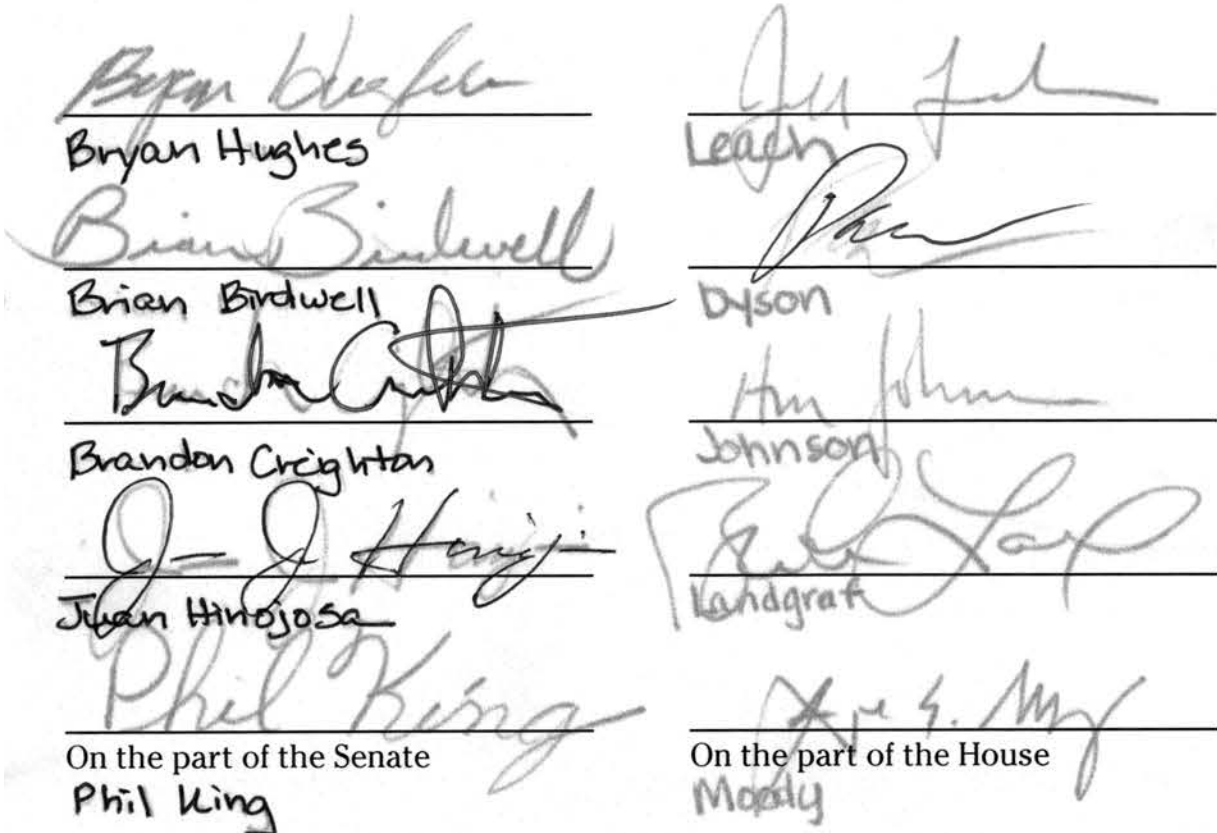 Bryan Hughes
Bryan Hughes
Brian Birdwell
Brian Birdwell
Brandon Creighton
Juan Hinojosa
Phil King
On the part of the Senate
Phil King
Leach
Dyson
Johnson
Landgraf
On the part of the House
Moody